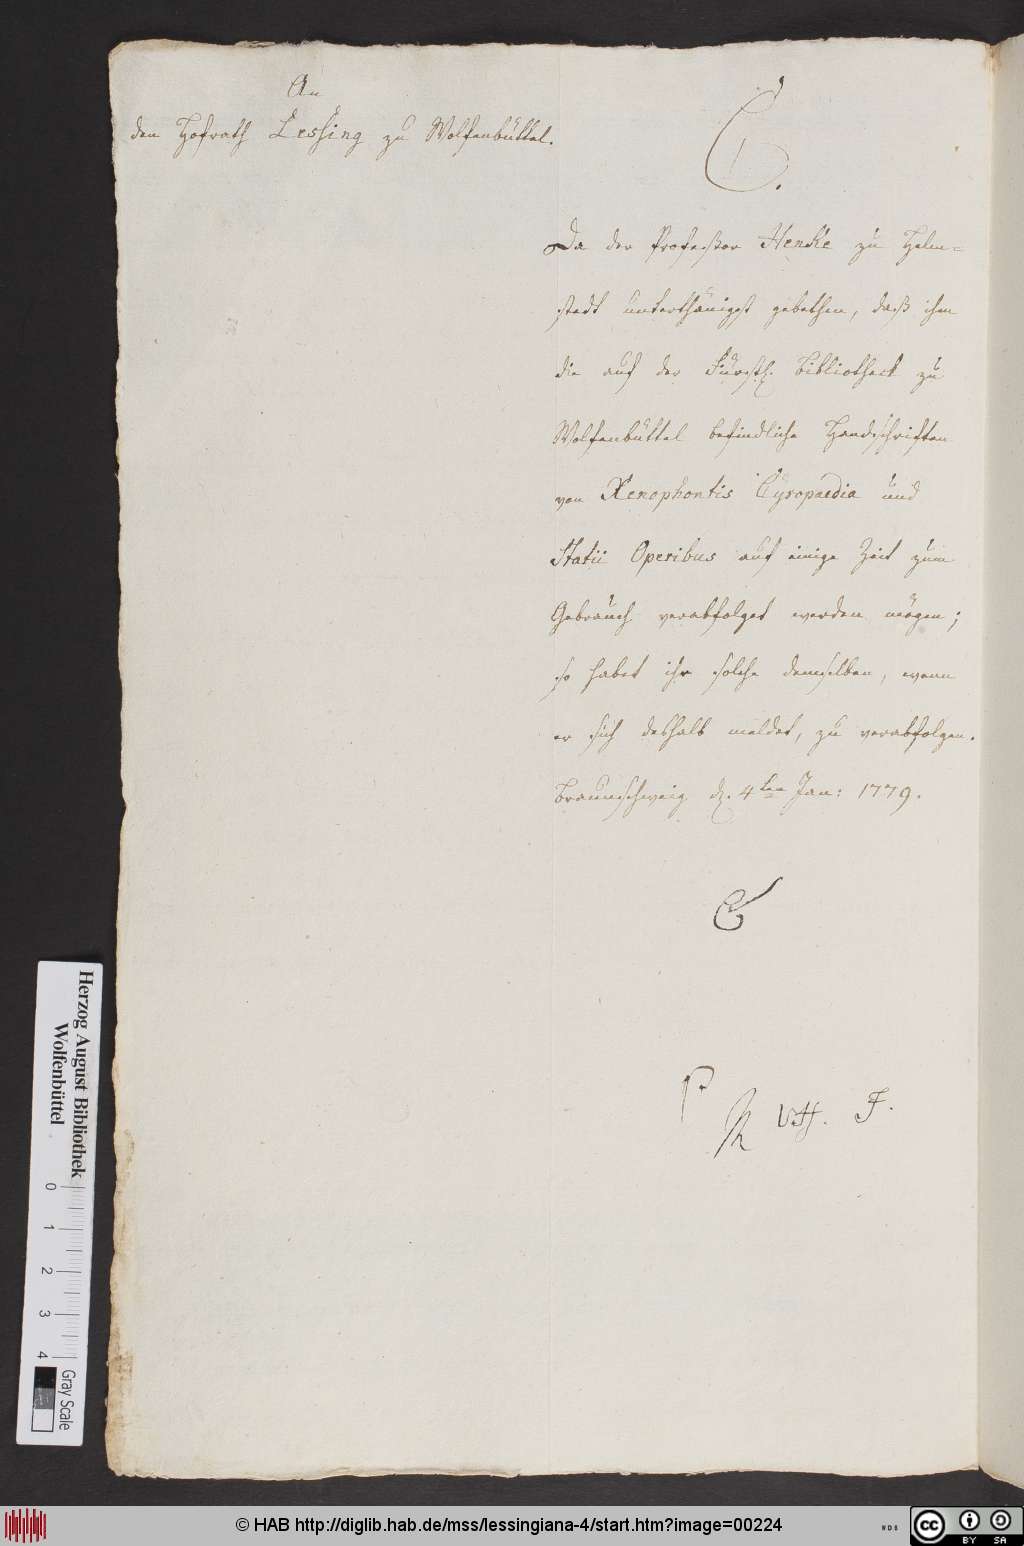 An
den Hofrath Lessing zu Wolfenbüttel.
C.
Da der Professor Henke zu Helm=
stedt unterthänigst gebethen, daß ihm
die auf der Fürstl. Bibliotheck zu
Wolfenbüttel befindliche Handschriften
von Xenophontis Cyropaedia und
Statii Operibus auf einige Zeit zum
Gebrauch verabfolget werden mögen;
so habet ihr solche demselben, wenn
er sich deshalb meldet, zu verabfolgen.
Braunschweig d. 4ten Jan: 1779.
F.
Herzog August Bibliothek
Wolfenbüttel
0 1 2 3 4
Gray Scale
© HAB http://diglib.hab.de/mss/lessingiana-4/start.htm?image=00224
WDB
cc BY SA